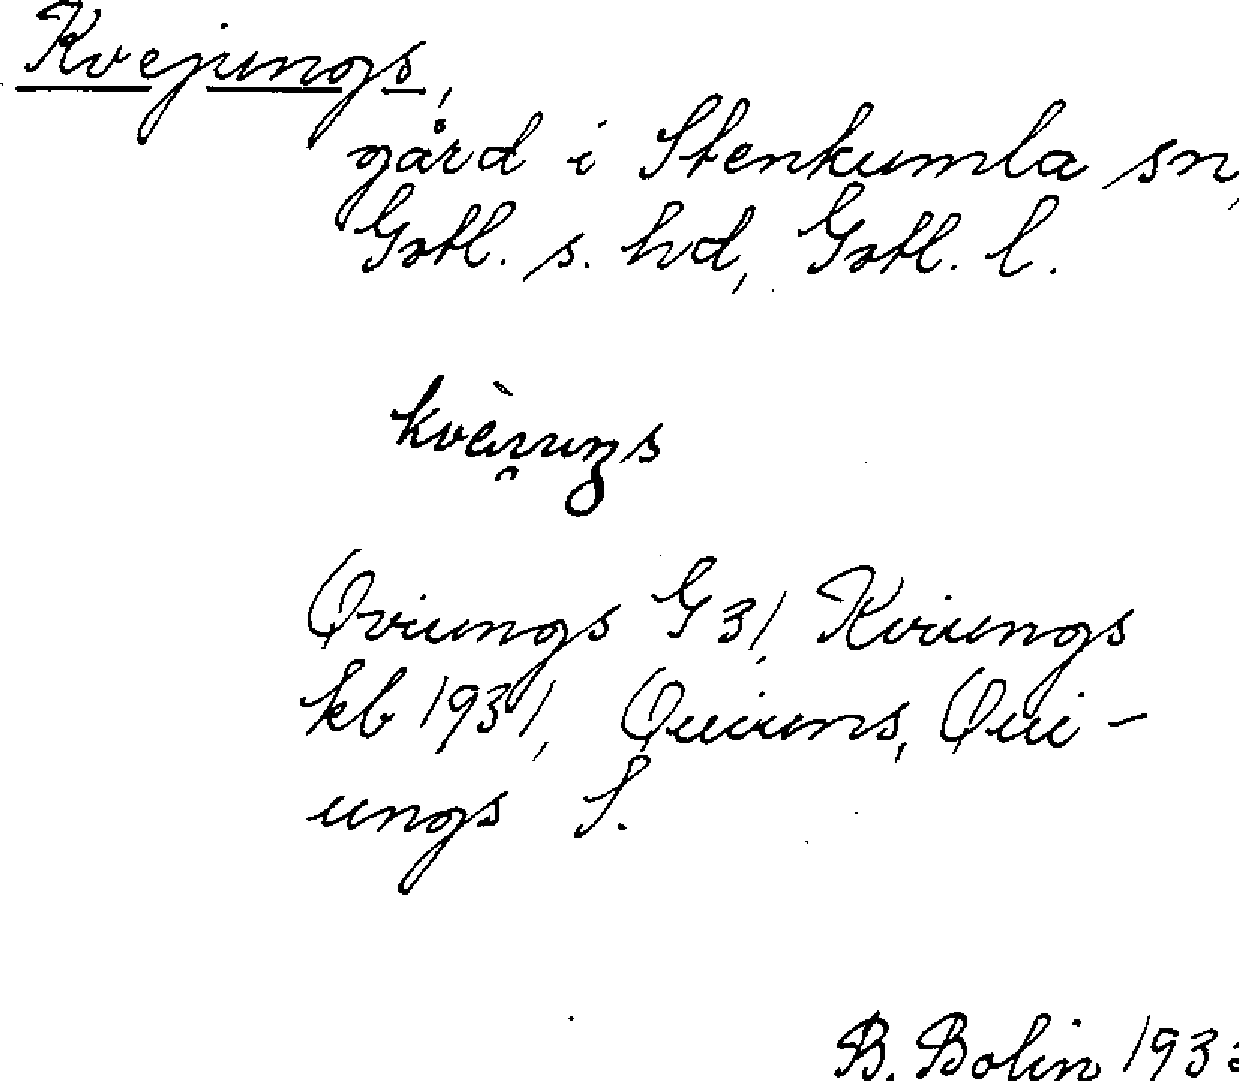 Kvejungs,
gård i Stenkumla sn,
Gotl. s. hd, Gotl. l.
Qviungs G 31, Kviungs
kb 1931, Quiuns, Qui-
ungs S.
B. Bolin 193